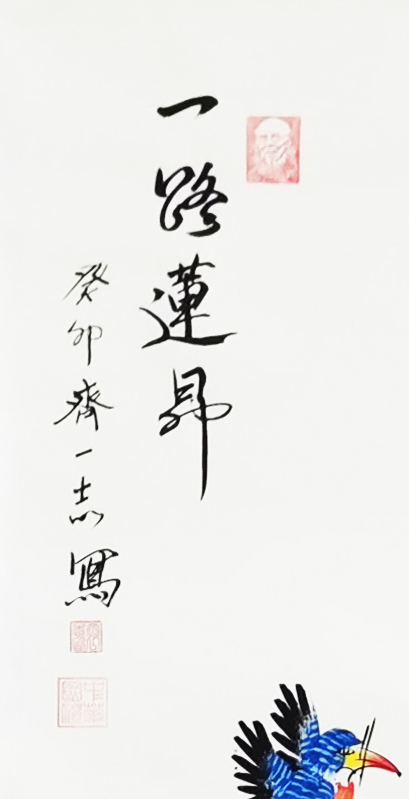 一路蓮昴
癸卯齊一志寫